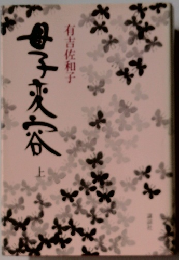 有吉佐和子
母子変容
上
講談社